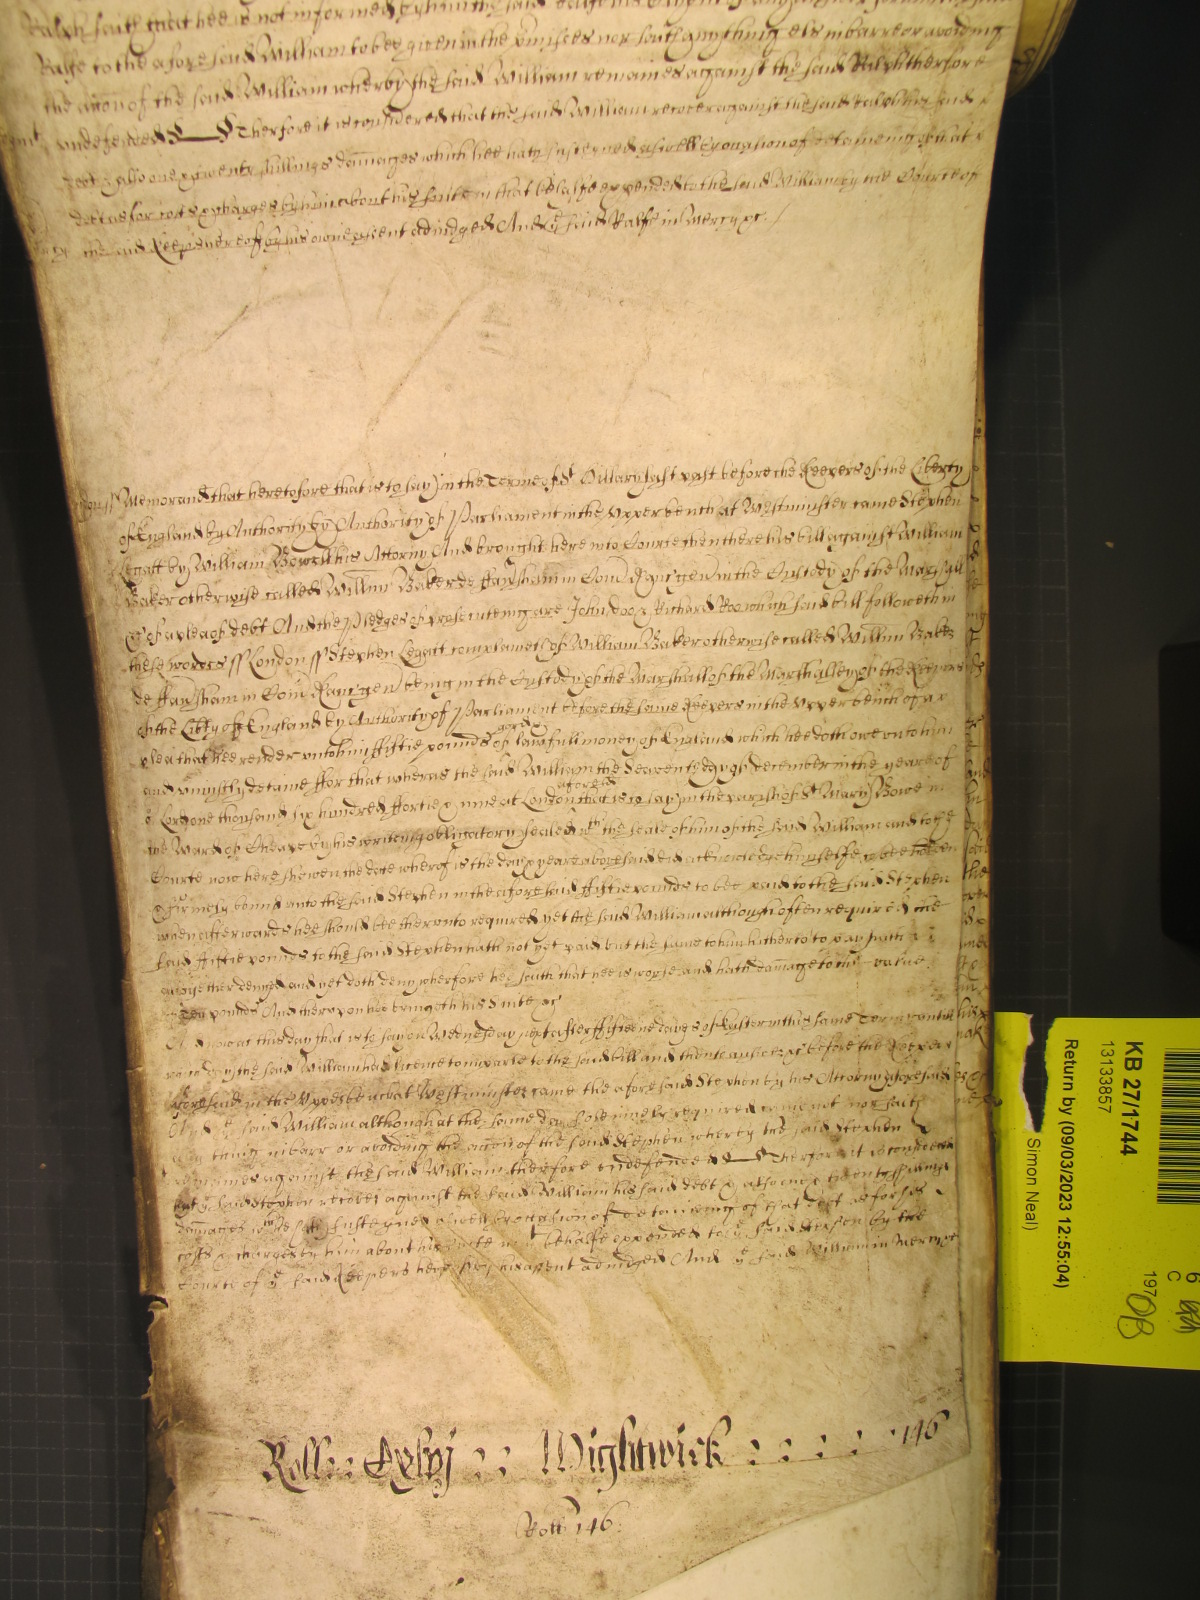 Ralph saith that hee is not informed by him the said
Ralfe to the aforesaid William to bee given in the premisses nor saith anything els in barre or avoiding
the accon of the said William wherby the said William remaines against the said Ralph therfore
undefended Therfore it is considered that the said William recover against the said Ralph his said
Debt & alsoe one & twenty shillings dammages which hee hath susteyned aswell by occasion of detaineing of that
debt as for costs & charges by him about his suite in that behalfe expended to the said William by the Courte of
the said Keepers here of his owne assent adiudged And ye said Ralfe in Mercy &c.
London ss Memorand that heretofore that is to say in the Terme of St Hillary last past before the Keepers of the Liberty
of England by Authority by Authority of Parliament in the upper bench at Westminster came Stephen
Legatt by William Bowell his Attorny And brought here into Courte then there his bill against William
Baker otherwise called Willim Baker de Hawsham in Com gen in the Custody of the Marshall
&c of a plea of debt And the Pledges of prosecuteing are John doo & Richard Roo which said bill followeth in
these words ss London ss Stephen Legatt complaineth of William Baker otherwise called Willim Baker
de Hawsham in Com gen being in the Custody of the Marshall of the Marshalsey of the Keepers
of the Libty of England by Authority of Parliament before the same Keepers in the upper bench of a
plea that hee render unto him fiftie pounds of lawfull money of England which hee doth owe unto him
and uniustly detaine ffor that wheras the said William the seaventh day of december in the yeare of
or Lord one thousand six hundred ffortie & nine at London aforesaid that is to say in the parish of St Mary Bowe in
the Ward of Cheape by his writeing obligatory sealed wth the seale of him of the said William and to the
Courte now here shewen the date wherof is the day & yeare abovesaid did acknowledge himselfe to bee holden
& firmely bound unto the said Stephen in the aforesaid fiftie pounds to bee paid to the said Stephen
when afterwards hee should bee therunto required yet the said William although often required the
said ffiftie pounds to the said Stephen hath not yet paid but the same to him hitherto to pay hath
altogether denyed and yet doth deny wherfore hee saith that hee is worse and hath damage to the value
of Ten pounds And therupon hee bringeth his suite &c
And now at this day that is to say on Wednesday next after fifteene dayes of Easter in this same Terme untill
which day the said William had licence to imparle to the said bill and then to answer &c before the Keepers
aforesaid in the Upper bench at Westminster came the aforesaid Stephen by his Attorny aforesaid
And ye said William although at the same day solemnely required came not nor saith
any thing in barr or avoiding the accon of the said Stephen wherby the said Stephen
remaines against the said William therefore undefended Therfore it is considered
that ye said Stephen recover against the said William his said debt & alsoe one & twenty shillings
dammages wch he hath susteyned aswell by occasion of detaineing of that debt as for his
costs & charges by him about his suite in yt behalfe expended to ye said Stephen by the
Courte of ye said Keepers here by his assent adiudged And ye said William in Mercy &c
Roll:: :: Wightwick : : : : 146
Roll 146
KB 27/1744
13133857
Return by (09/03/2023 12:55:04)
Simon Neal)
197
6
C